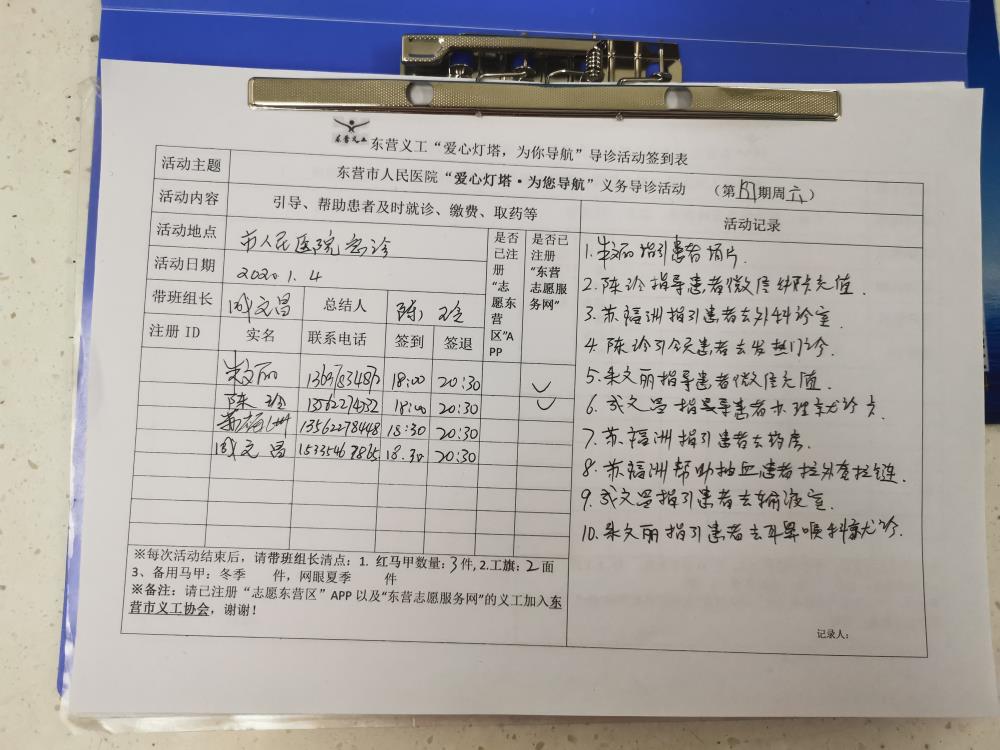 东营义工
东营义工“爱心灯塔，为你导航”导诊活动签到表
活动主题 东营市人民医院“爱心灯塔·为您导航”义务导诊活动 （第期周六）
活动内容 引导、帮助患者及时就诊、缴费、取药等
活动地点 市人民医院急诊
活动日期 2020.1.4
带班组长 成文昌 总结人 陈玲
是否已注册“志愿东营区”APP
是否已注册“东营志愿服务网”
注册 ID 实名 联系电话 签到 签退
朱文丽 18:00 20:30
陈玲 13562274532 18:00 20:30
苏福洲 13562278448 18:30 20:30
成文昌 15335467865 18.30 20:30
※每次活动结束后，请带班组长清点：1. 红马甲数量：3件, 2.工旗：2面
3、备用马甲：冬季 件，网眼夏季 件
※备注：请已注册“志愿东营区”APP 以及“东营志愿服务网”的义工加入东
营市义工协会，谢谢！
活动记录
1.朱文丽指引患者拍片.
2.陈玲指导患者微信纤联充值.
3.苏福洲指引患者去外科诊室.
4.陈玲引领患者去发热门诊.
5.朱文丽指导患者微信充值.
6.成文昌指导患者办理就诊卡
7.苏福洲指引患者去药房.
8.苏福洲帮助抽血患者拉外套拉链.
9.成文昌指引患者去输液室.
10.朱文丽指引患者去耳鼻喉科就诊.
记录人：